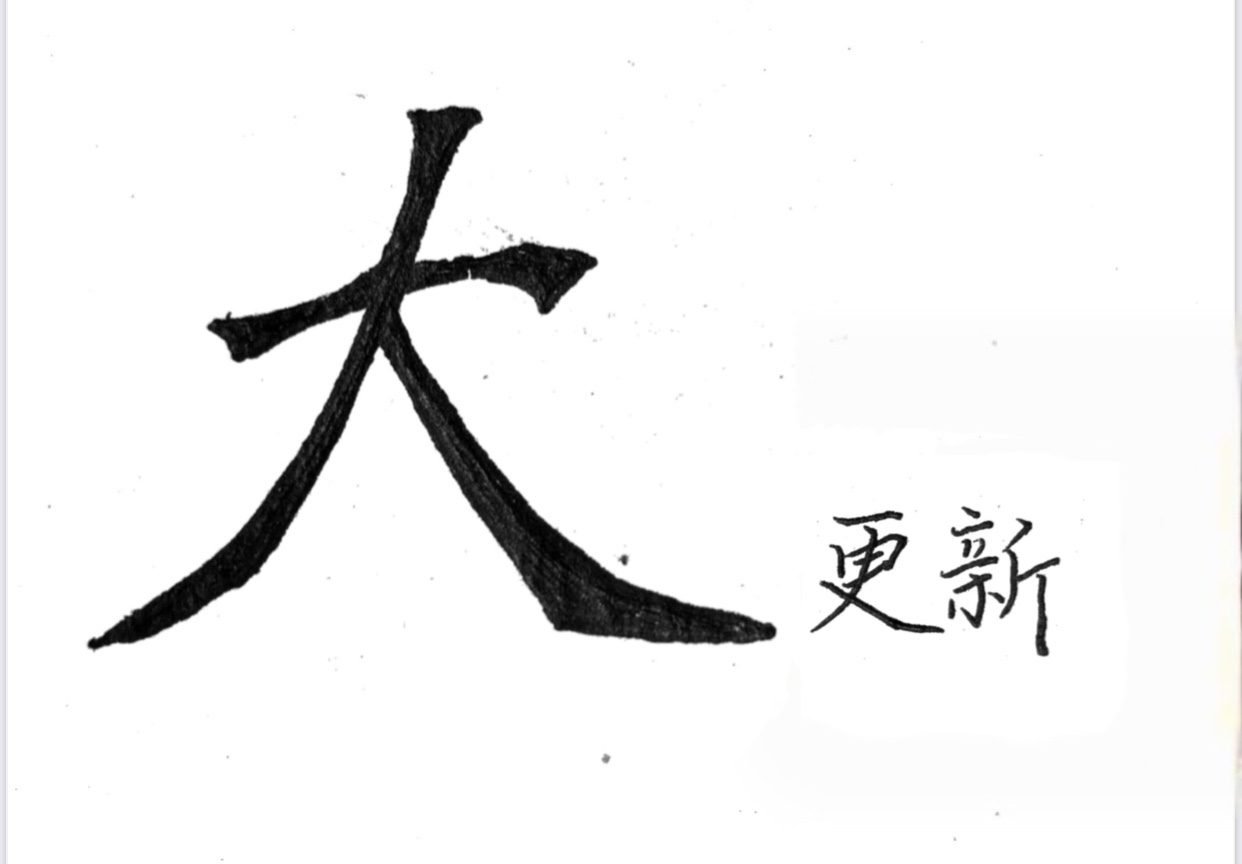 大更新